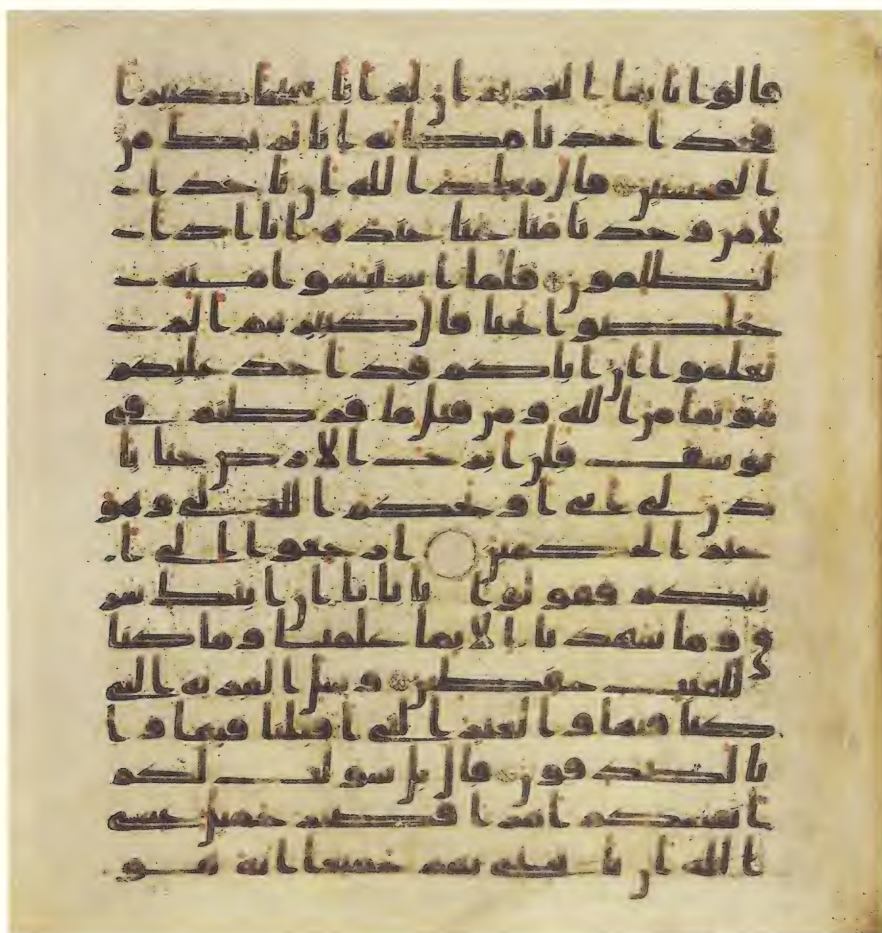 قالوا يايها العزيز ان له ابا شيخا كبيرا
فخذ احدنا مكانه انا نريك من
المحسنين قال معاذ الله ان ناخذ ا
لا من وجدنا متعنا عنده انا اذا
لظلمون فلما استيئسوا منه
خلصوا نجيا قال كبيرهم الم
تعلموا ان اباكم قد اخذ عليكم
موثقا من الله ومن قبل ما فرطتم في
يوسف فلن ابرح الارض حتى يا
ذن لي ابي او يحكم الله لي وهو
خير الحكمين ارجعوا الى ا
بيكم فقولوا يابانا ان ابنك سر
ق وما شهدنا الا بما علمنا وما كنا
للغيب حفظين وسل القرية التي
كنا فيها والعير التي اقبلنا فيها وا
نا لصدقون قال بل سولت لكم
انفسكم امرا فصبر جميل عسى
الله ان ياتيني بهم جميعا انه هو